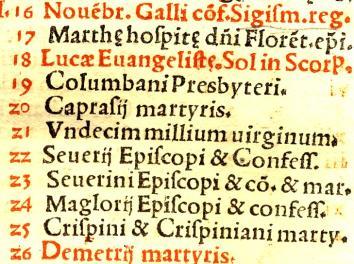 16 Nouēbr. Galli cōf. Sigiſm. reg.
17 Marthę hoſpitę dñi Florēt. epi.
18 Lucæ Euangeliſtę. Sol in Scorp.
19 Columbani Presbyteri.
20 Capraſij martyris.
21 Vndecim millium uirginum.
22 Seuerij Epiſcopi & Confeſſ.
23 Seuerini Epiſcopi & cō. & mar.
24 Maglorij Epiſcopi & confeſſ.
25 Criſpini & Criſpiniani marty.
26 Demetrij martyris.